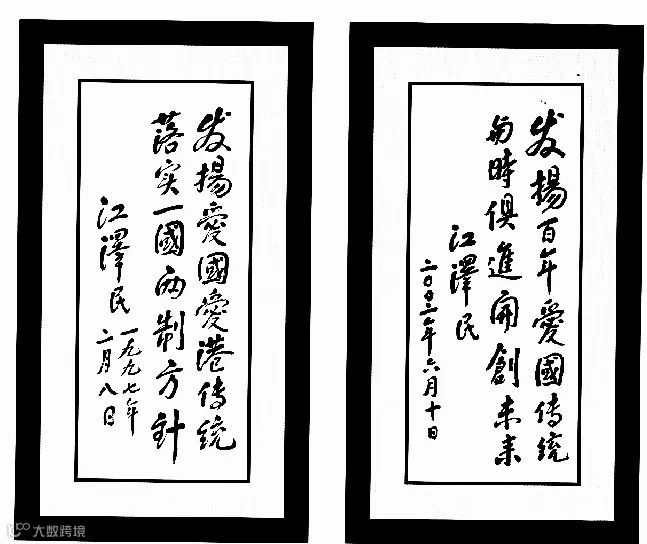 发揚愛國愛港传统
落实一國两制方針
江澤民
一九九七年
二月八日
发揚百年愛國传统
与時俱進開創未来
江澤民
二〇〇二年六月十日
大数跨境